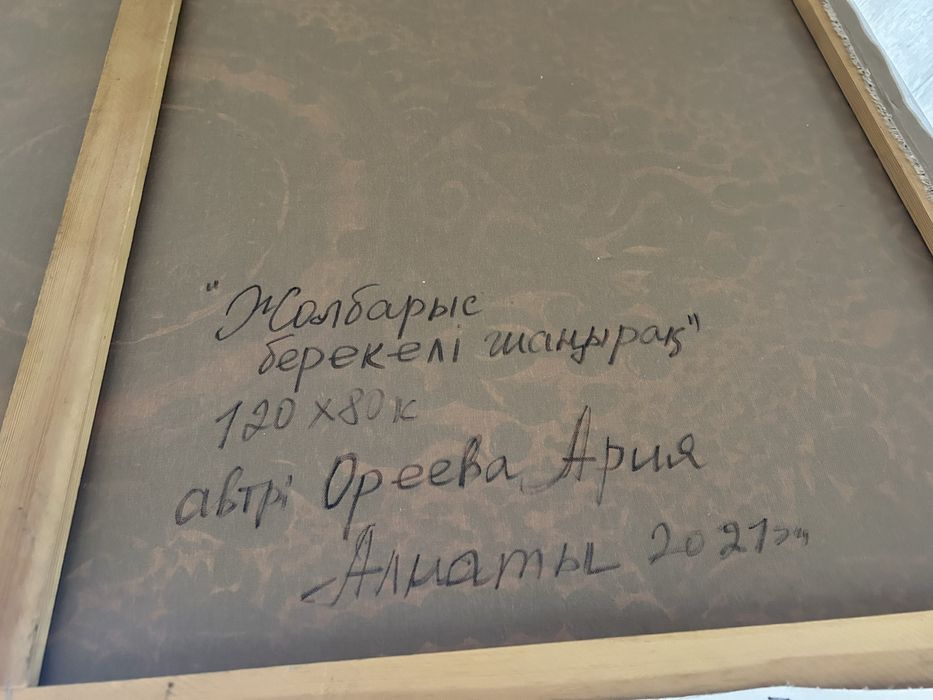 "Жолбарыс
берекелі шаңырақ"
120х80к
автрі Ореева Ария
Алматы 2021ж